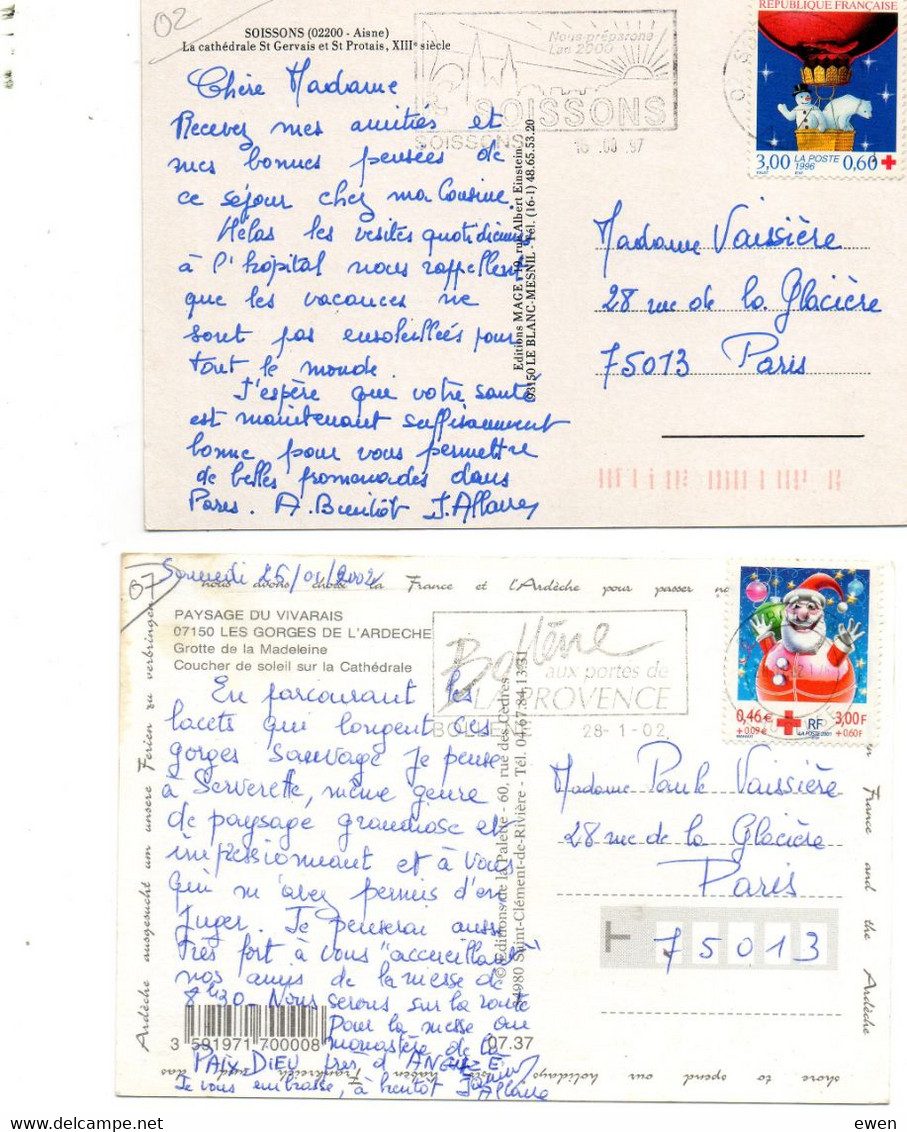 02
SOISSONS (02200 - Aisne)
La cathédrale St Gervais et St Protais, XIIIe siècle
Nous préparons
l'an 2000
SOISSONS
SOISSONS
16 .08 .97
RÉPUBLIQUE FRANÇAISE
3,00 LA POSTE 1996 0,60
Chère Madame
Recevez mes amitiés et
mes bonnes pensées de
ce séjour chez ma Cousine.
Hélas les visites quotidiennes
à l'hôpital nous rappellent
que les vacances ne
sont pas ensoleillées pour
tout le monde.
J'espère que votre santé
est maintenant suffisamment
bonne pour vous permettre
de belles promenades dans
Paris. A. Bientôt J. Allaire
Editions MAGE - 19, rue Albert Einstein
93150 LE BLANC-MESNIL - Tél. (16-1) 48.65.53.20
Madame Vaissière
28 rue de la Glacière
75013 Paris
07
Samedi 26/01/2002
nous avons choisi la France et l'Ardèche pour passer
PAYSAGE DU VIVARAIS
07150 LES GORGES DE L'ARDECHE
Grotte de la Madeleine
Coucher de soleil sur la Cathédrale
Bollène
aux portes de
LA PROVENCE
BOLLENE
28-1-02
0,46€ RF 3,00F
+0,09€ LA POSTE 2001 +0,60F
En parcourant les
lacets qui longent ces
gorges sauvage je pense
à Serverette, même genre
de paysage grandiose et
impressionnant et à Vous
qui m'avez permis d'en
juger. Je penserai aussi
très fort à vous "accueillant"
nos amis de la messe de
8h30. Nous serons sur la route
pour la messe au
monastère de la
PAIX DIEU près d'ANDUZE
Je vous embrasse, à bientôt
Allaire
© Editions de la Palette - 60, rue des Cèdres
34980 Saint-Clément-de-Rivière - Tél. 04.67.84.13.31
Madame Paule Vaissière
28 rue de la Glacière
Paris
75013
3 591971 700008
07.37
Ardèche ausgesucht um unsere Ferien zu verbringen
France and the Ardèche
shore to spend our holidays
haben Frankreich
ewen